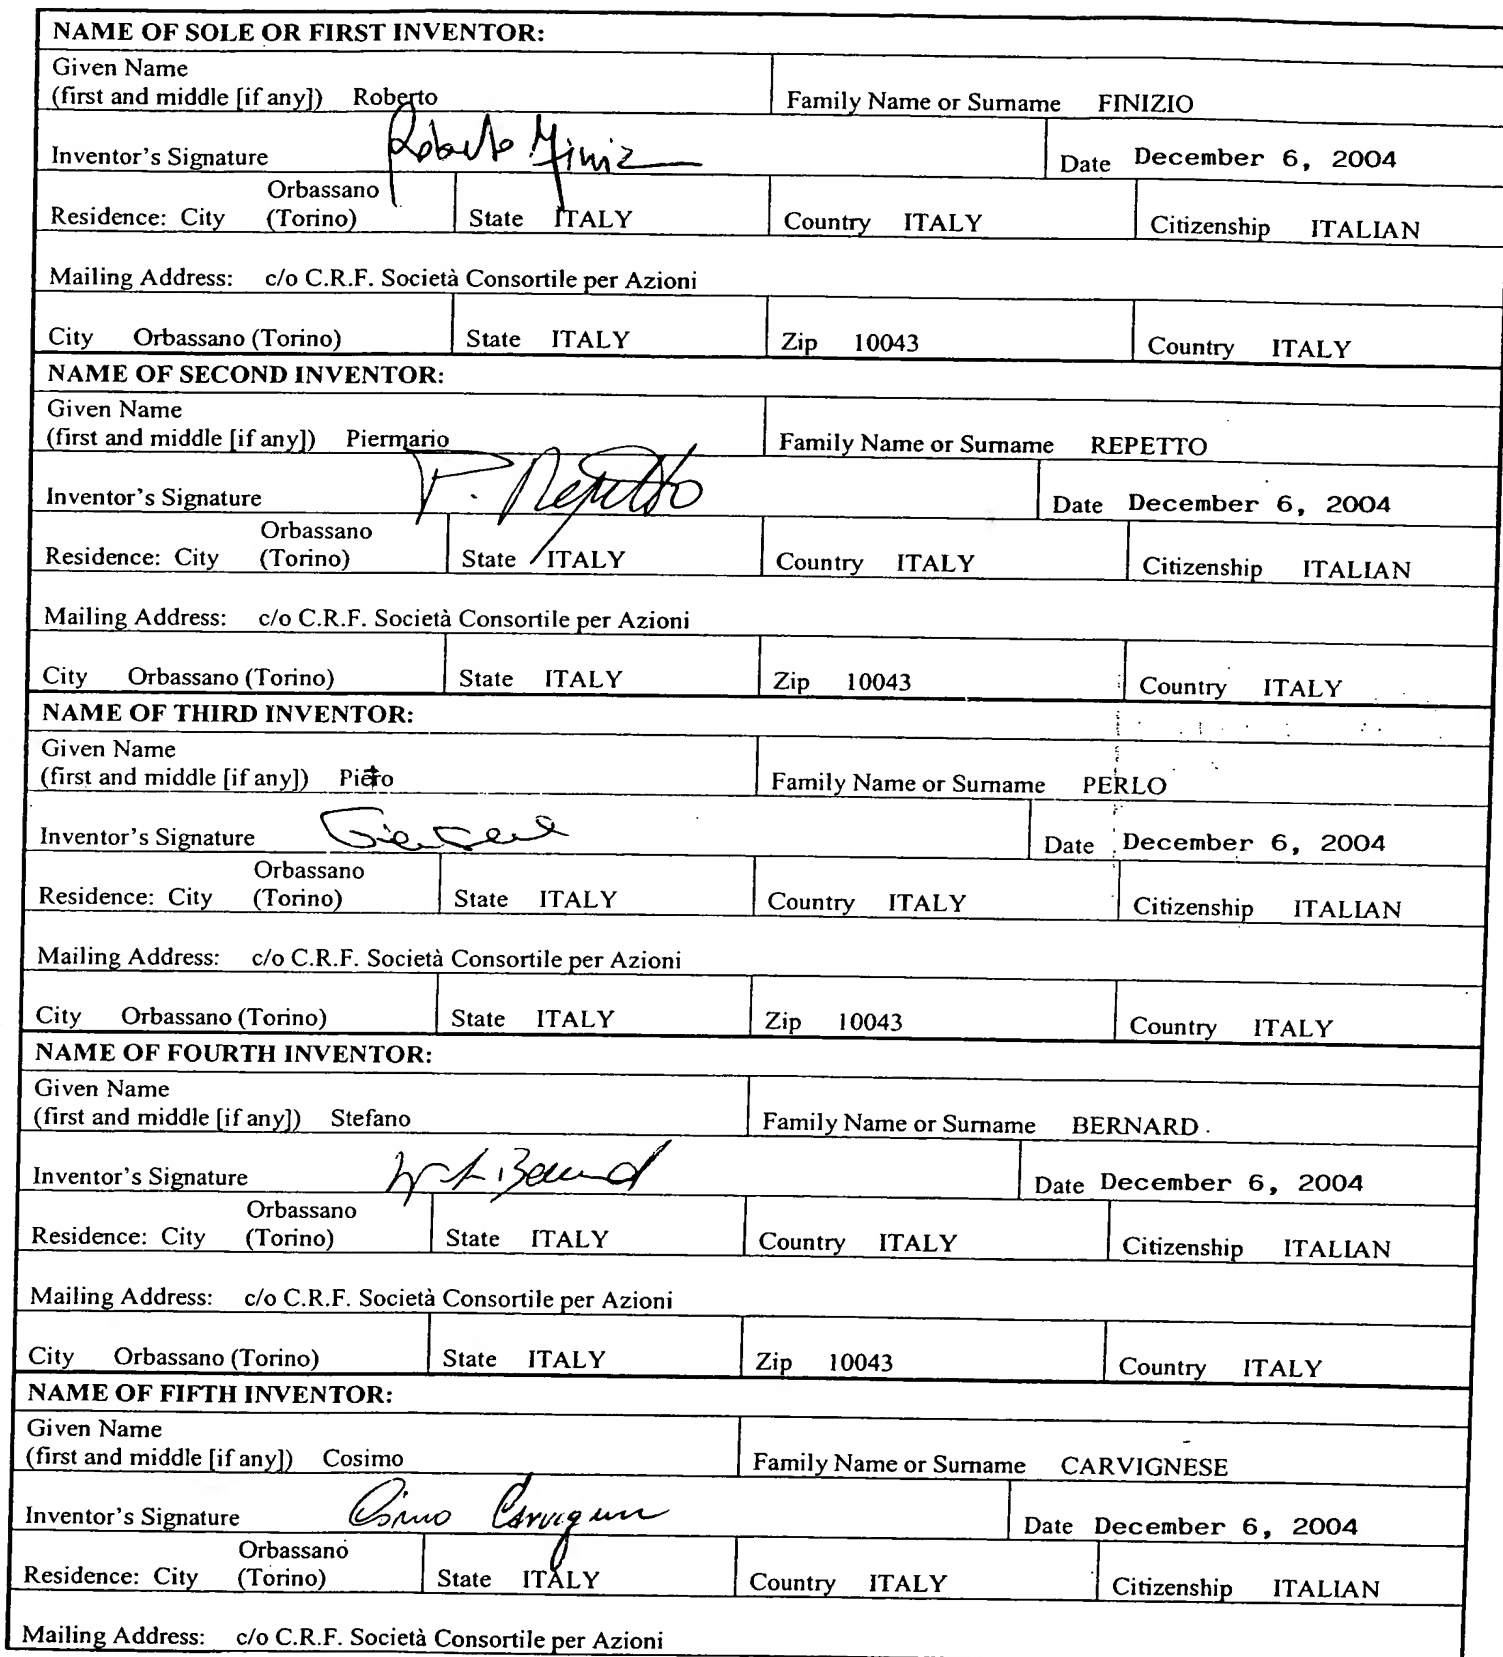 NAME OF SOLE OR FIRST INVENTOR:
Given Name
(first and middle [if any]) Roberto Family Name or Surname FINIZIO
Inventor's Signature Roberto Finiz Date December 6, 2004
Orbassano
Residence: City (Torino) State ITALY Country ITALY Citizenship ITALIAN
Mailing Address: c/o C.R.F. Società Consortile per Azioni
City Orbassano (Torino) State ITALY Zip 10043 Country ITALY
NAME OF SECOND INVENTOR:
Given Name
(first and middle [if any]) Piermario Family Name or Surname REPETTO
Inventor's Signature P. Repetto Date December 6, 2004
Orbassano
Residence: City (Torino) State ITALY Country ITALY Citizenship ITALIAN
Mailing Address: c/o C.R.F. Società Consortile per Azioni
City Orbassano (Torino) State ITALY Zip 10043 Country ITALY
NAME OF THIRD INVENTOR:
Given Name
(first and middle [if any]) Piero Family Name or Surname PERLO
Inventor's Signature Date December 6, 2004
Orbassano
Residence: City (Torino) State ITALY Country ITALY Citizenship ITALIAN
Mailing Address: c/o C.R.F. Società Consortile per Azioni
City Orbassano (Torino) State ITALY Zip 10043 Country ITALY
NAME OF FOURTH INVENTOR:
Given Name
(first and middle [if any]) Stefano Family Name or Surname BERNARD
Inventor's Signature Date December 6, 2004
Orbassano
Residence: City (Torino) State ITALY Country ITALY Citizenship ITALIAN
Mailing Address: c/o C.R.F. Società Consortile per Azioni
City Orbassano (Torino) State ITALY Zip 10043 Country ITALY
NAME OF FIFTH INVENTOR:
Given Name
(first and middle [if any]) Cosimo Family Name or Surname CARVIGNESE
Inventor's Signature Date December 6, 2004
Orbassano
Residence: City (Torino) State ITALY Country ITALY Citizenship ITALIAN
Mailing Address: c/o C.R.F. Società Consortile per Azioni